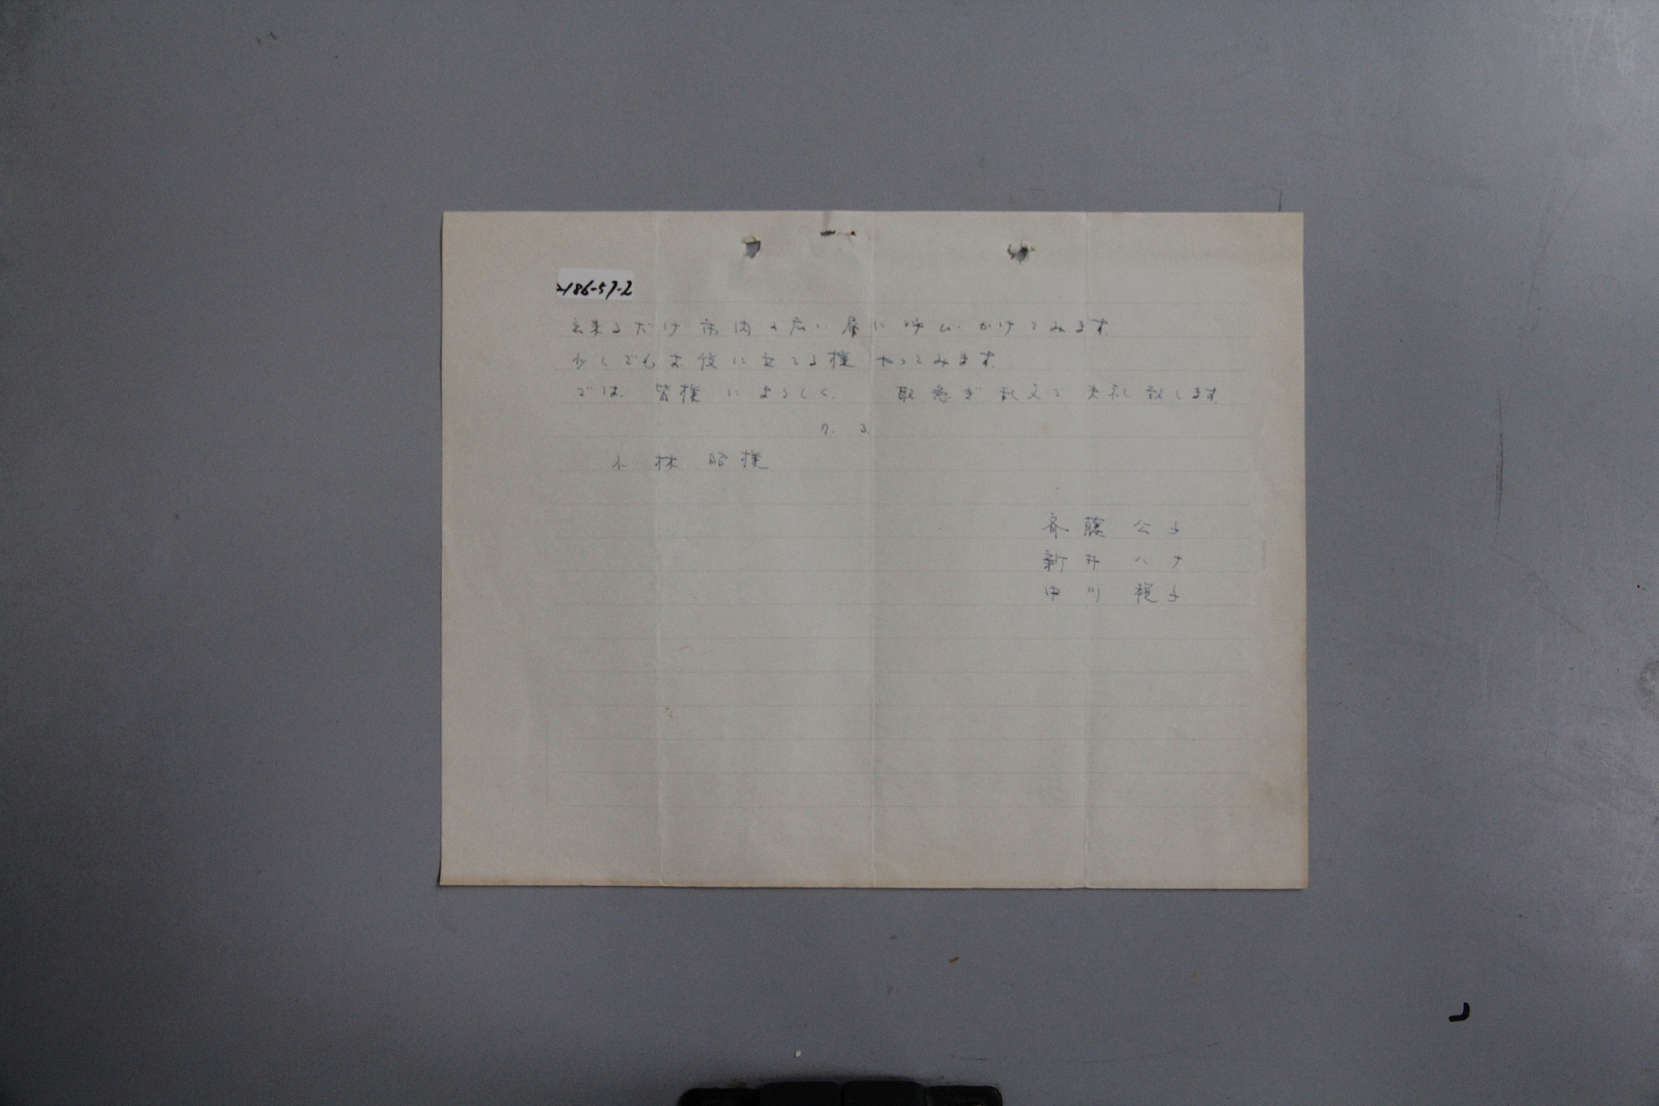 2186-57-2
出来るだけ市内の広い層に呼びかけてみます
少しでもお役に立てる様やってみます
では 皆様によろしく 取急ぎ乱文にて失礼致します
7. 2
小林 昭様
斉藤 公子
新井 ハナ
中川 視子